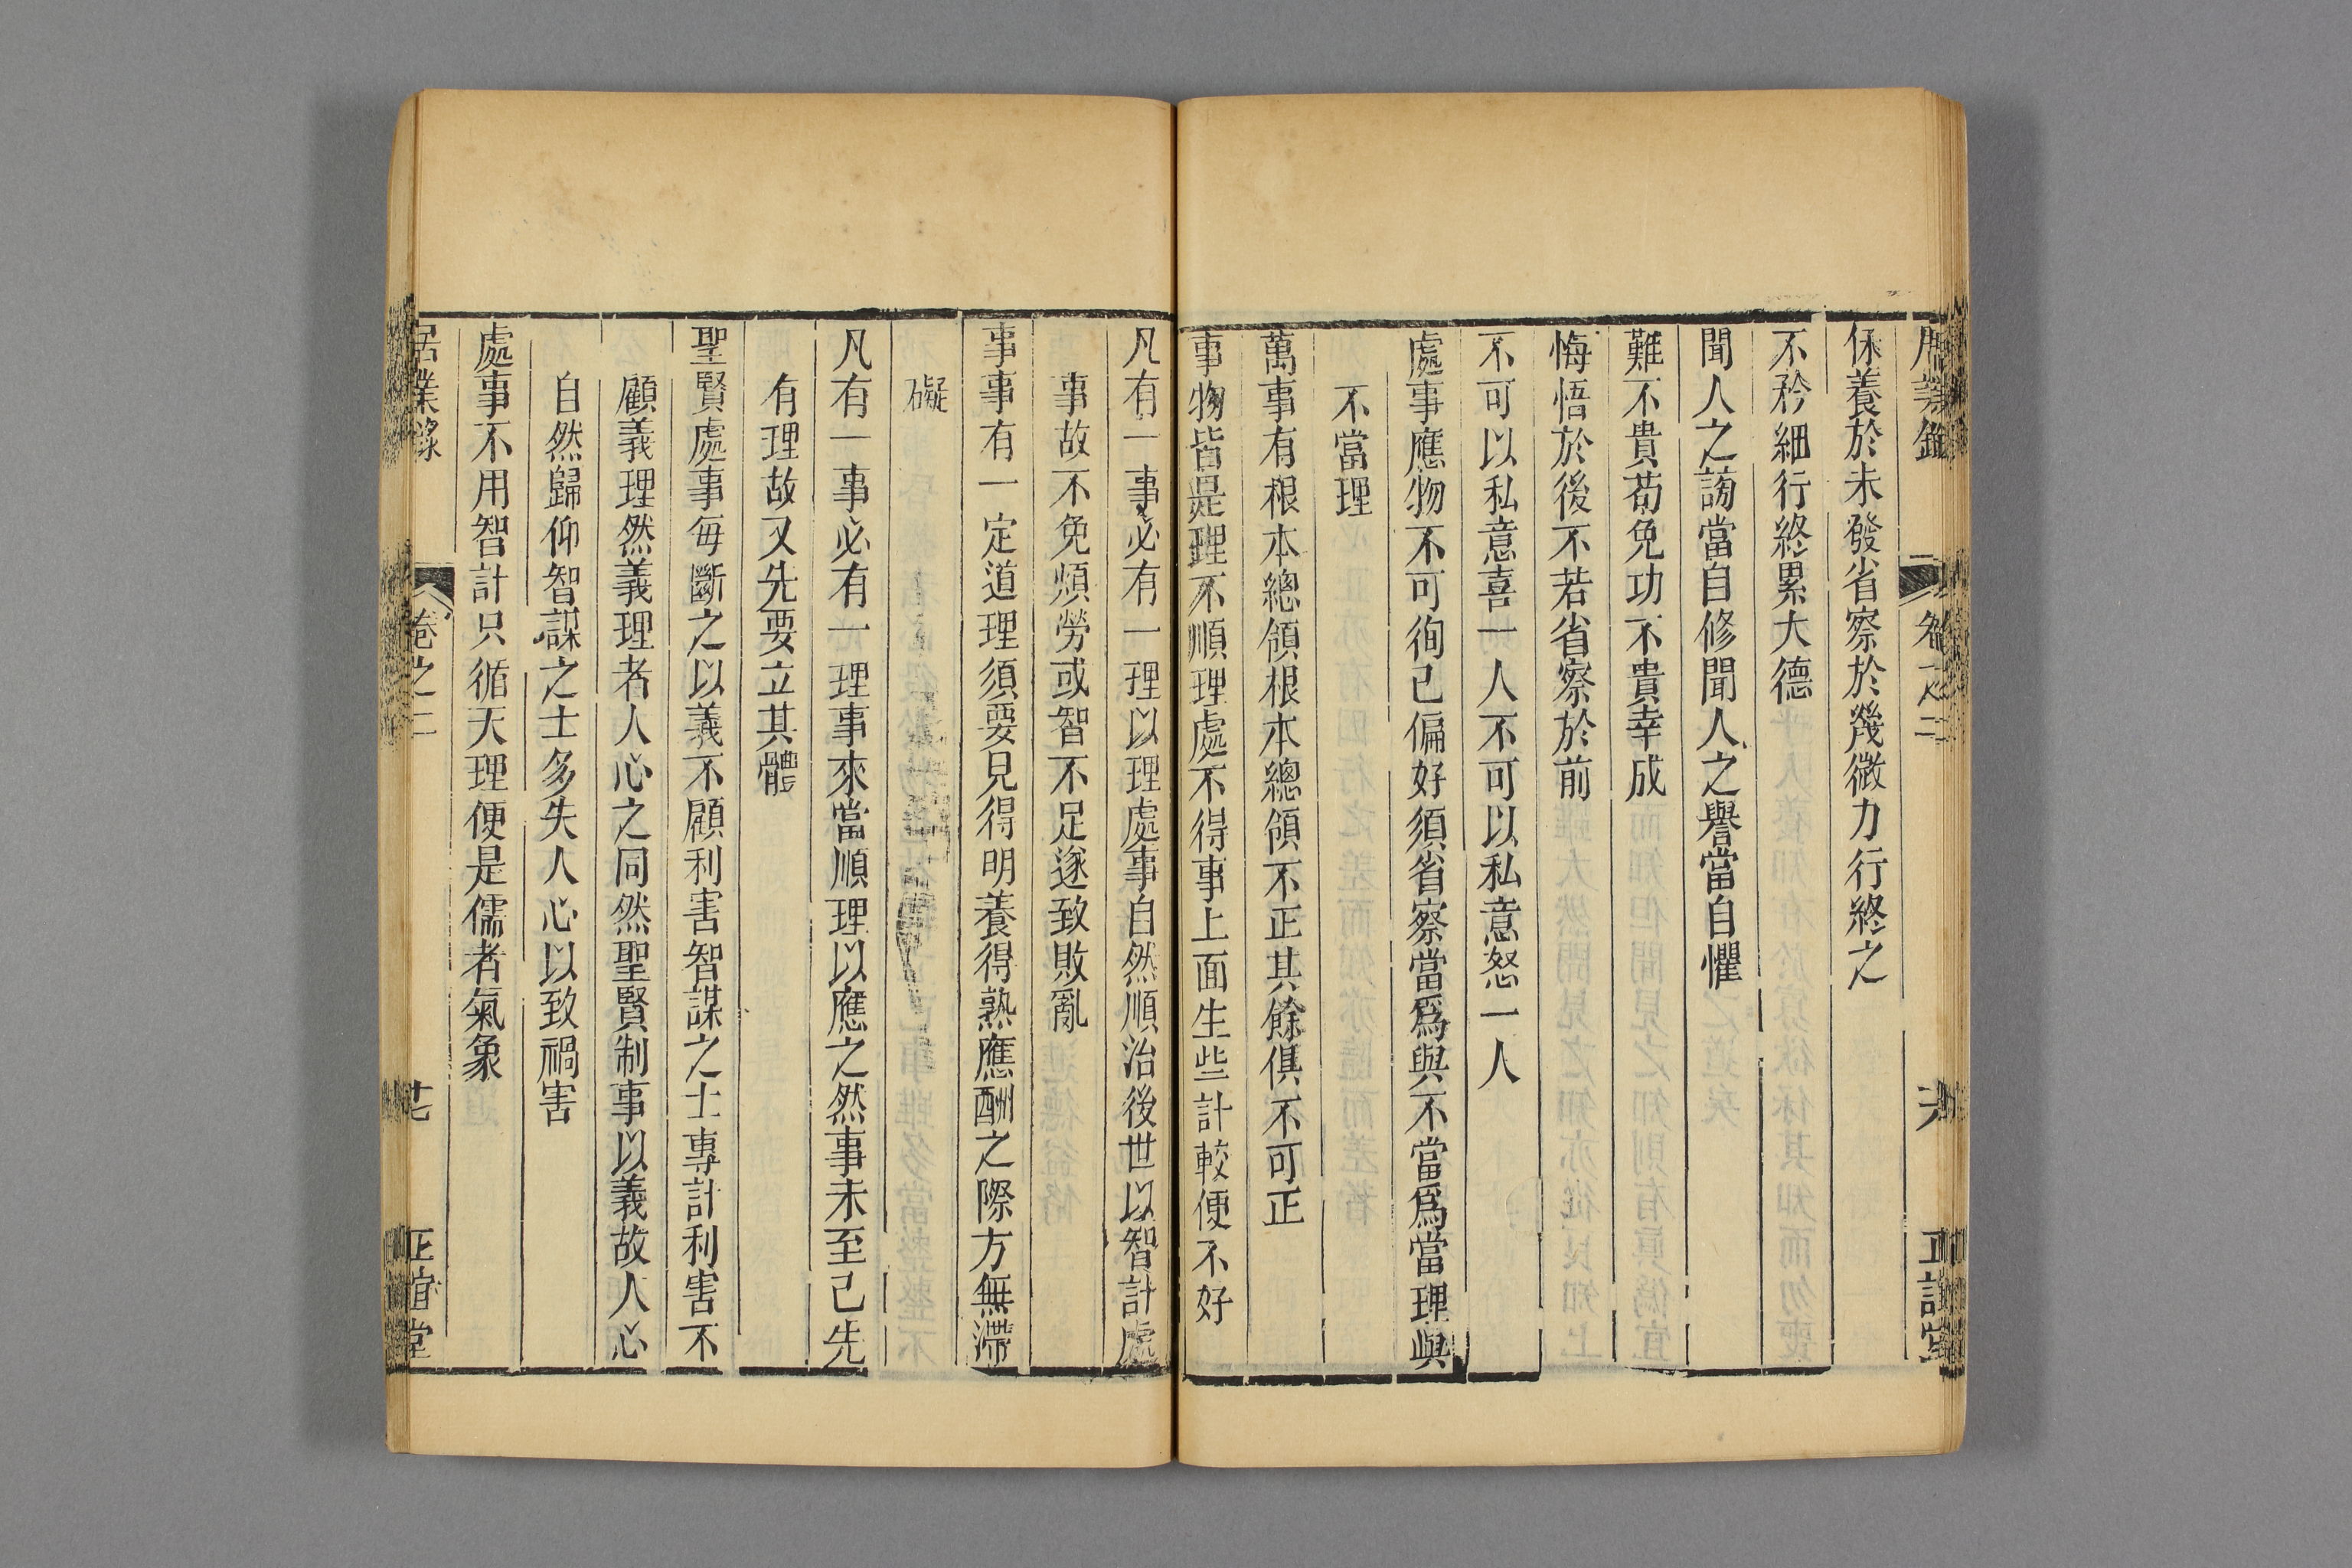 居業錄 卷之二 六 正誼堂
休養於未發省察於幾微力行終之
不矜細行終累大德
聞人之謗當自修聞人之譽當自懼
難不貴苟免功不貴幸成
悔悟於後不若省察於前
不可以私意喜一人不可以私意怒一人
處事應物不可徇己偏好須省察當爲與不當爲當理與
不當理
萬事有根本總領根本總領不正其餘俱不可正
事物皆是理不順理處不得事上面生些計較便不好
凡有一事必有一理以理處事自然順治後世以智計處
事故不免煩勞或智不足遂致敗亂
事事有一定道理須要見得明養得熟應酬之際方無滯
礙
凡有一事必有一理事來當順理以應之然事未至己先
有理故又先要立其體
聖賢處事每斷之以義不顧利害智謀之士專計利害不
顧義理然義理者人心之同然聖賢制事以義故人心
自然歸仰智謀之士多失人心以致禍害
處事不用智計只循天理便是儒者氣象
居業錄 卷之二 七 正誼堂